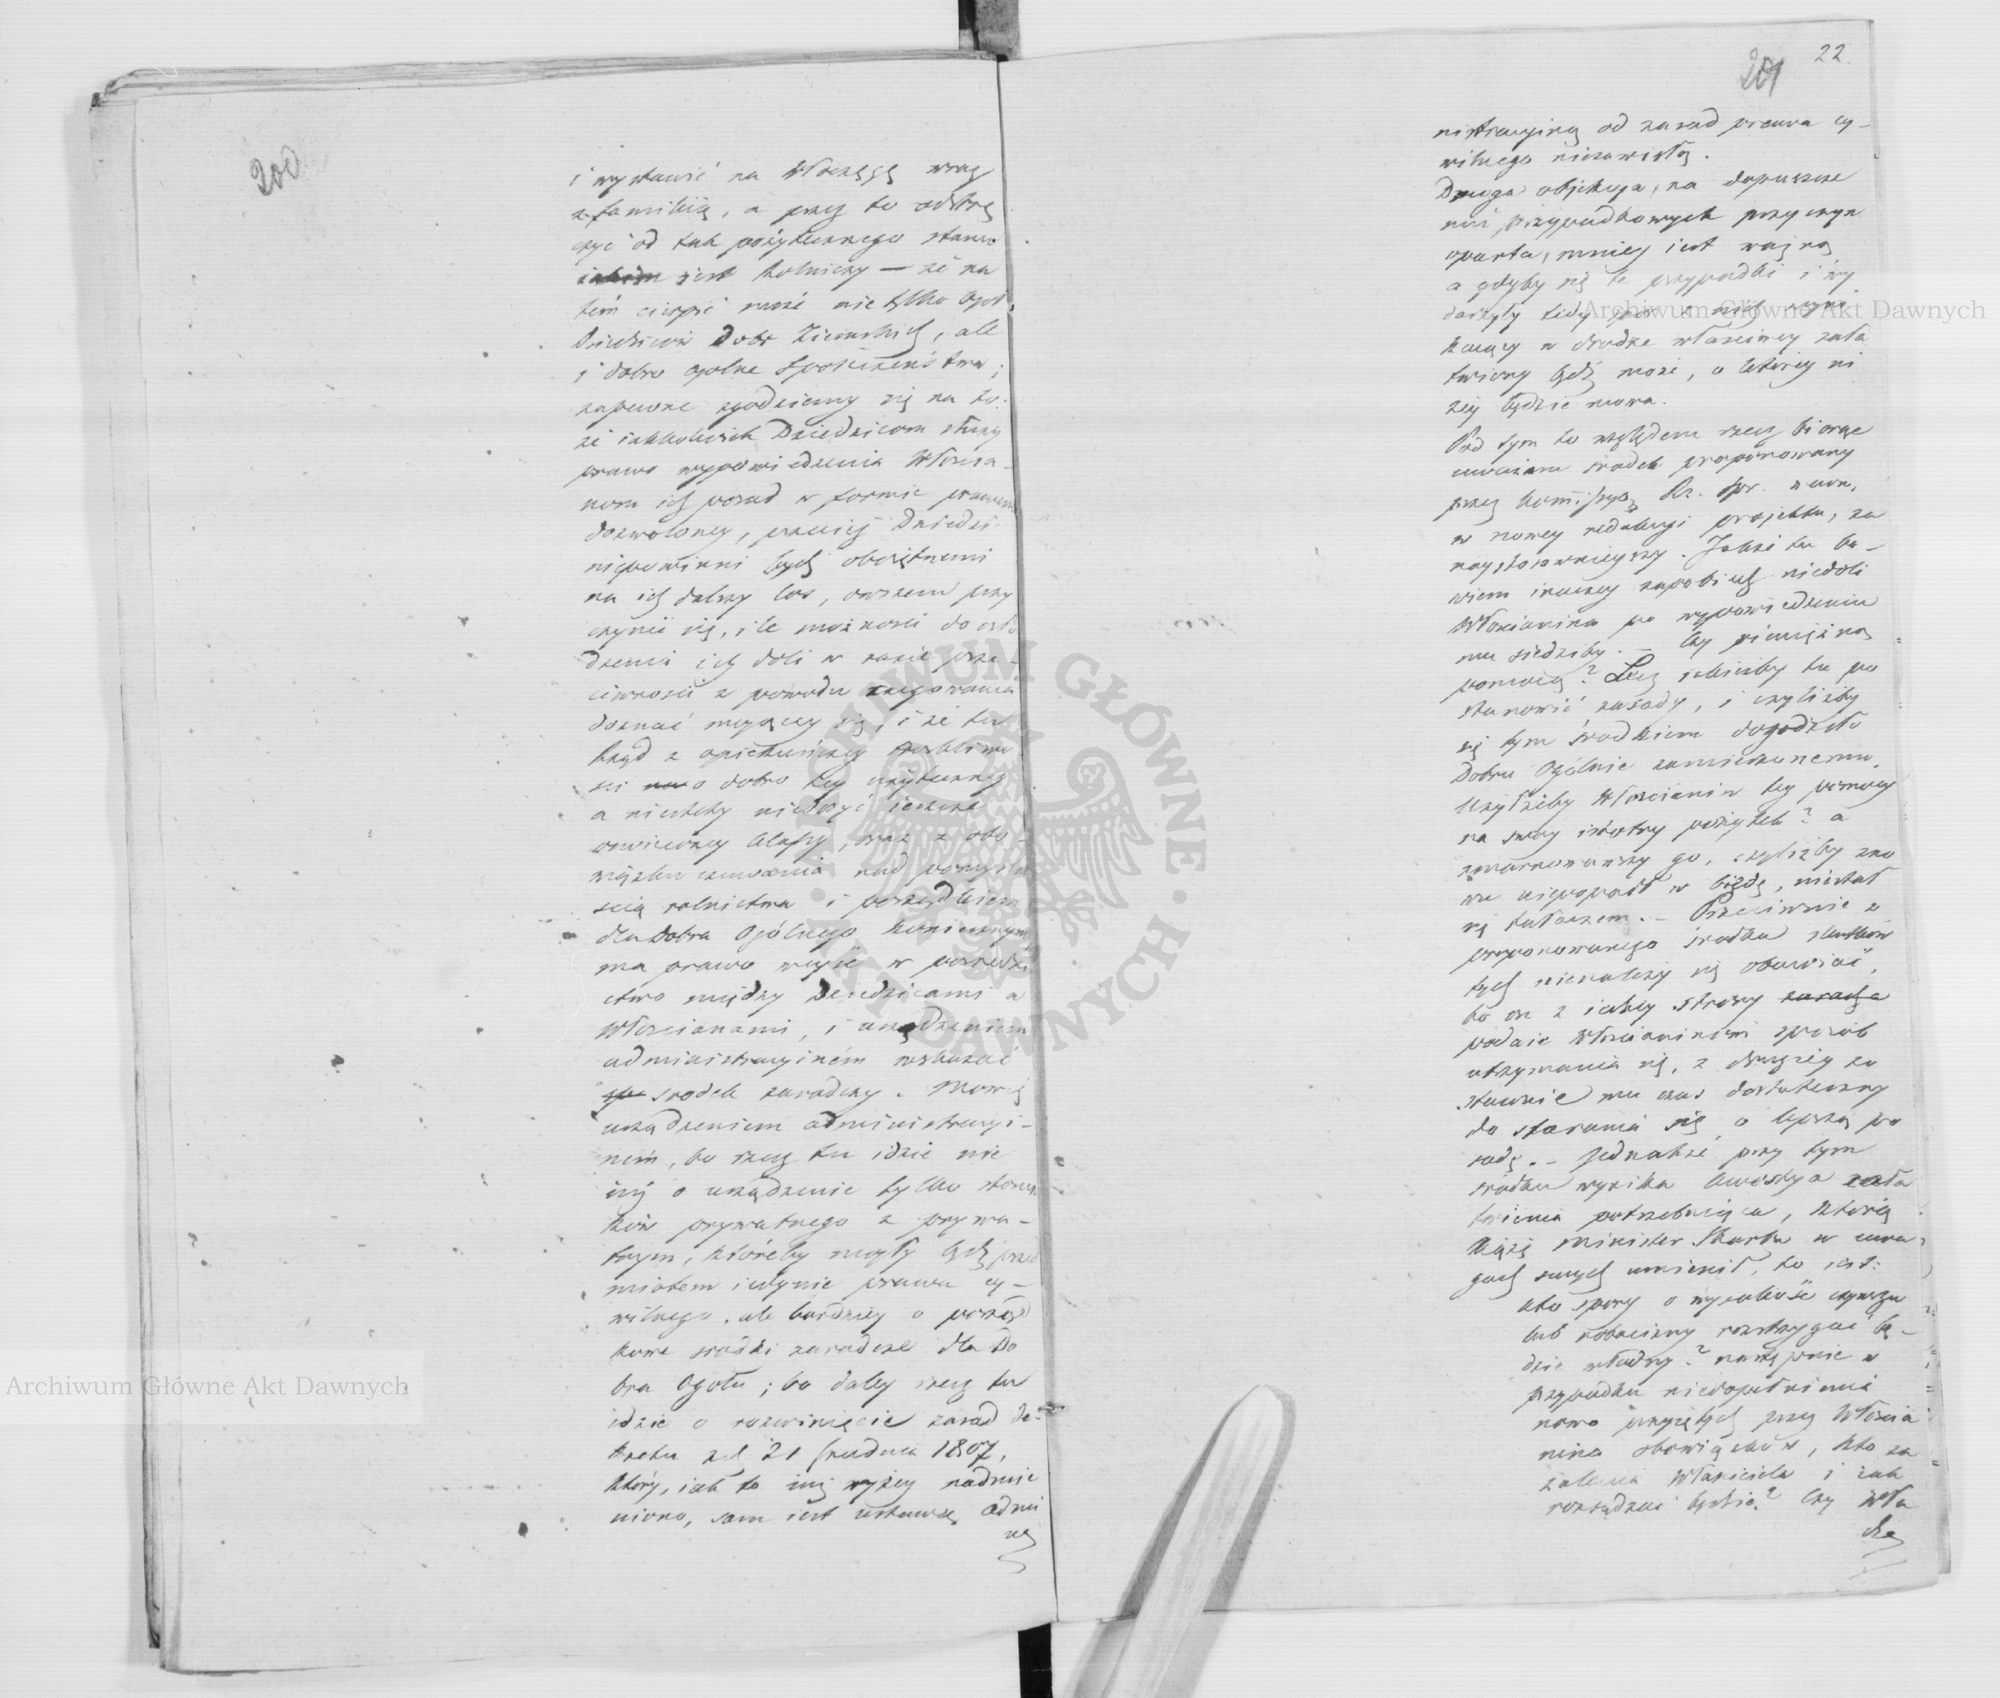 200
i wystawić na Włoczęgę wraz
z familią, a przez to odstrę
czyć od tak pożytecznego stanu
jest Rolniczy — że na
tém cierpić może nie tylko ogół
Dziedziców Dóbr Ziemskich, ale
i dobro ogolne Społeczeństwa;
zapewne zgodziemy się na to.
że iakkolwiek Dziedzicom służy
prawo wypowiedzenia Włościa-
nom ich posad w formie prawem
dozwoloney, przecież Dziedzi
niepowinni bydź oboiętnemi
na ich dalszy los, owszem przy
czynić się, ile możności do osło
dzenia ich doli w razie prze-
ciwności z powodu rugowania
doznać mogącey się, i że tu
Rząd z opiekuńczey troskliwo
ści o dobro tey użyteczney
a niestety niedosyć ieszcze
oświeconey klassy, oraz z obo-
wiązku czuwania nad pomyślno
ścią rolnictwa i porządkiem
dla Dobra Ogólnego koniecznym
ma prawo weyść w pośredni
ctwo między Dziedzicami a
Włościanami, i urządzeniem
administracyiném wskazać
środek zaradczy. Mowię
urządzeniem administracyi-
ném, bo rzecz tu idzie nie
iuż o urządzenie tylko stosun
ków prywatnego z prywa-
tnym, któreby mogły bydź przed
miotem iedynie prawa cy-
wilnego, ale bardziey o porząd
kowe srodki zaradcze dla Do
bra Ogołu; bo daley rzecz tu
idzie o rozwinięcie zasad de-
kretu z d 21 Grudnia 1807,
który, iak to iuż wyżey nadmie
niono, sam iest ustawą admi
ni
22.
201
nistracyiną od zasad prawa cy-
wilnego niezawisłą.
Druga objekcya, na dopuszcze
niu przypadkowych przyczyn
oparta, mniey iest ważną
a gdyby się te przypadki i wy
darzyły tedy spór z nich wyni
kaiący w drodze właściwey zała
twiony bydź może, o którey ni
żey będzie mowa.
Pod tym to względem rzecz biorąc
uważam środek proponowany
przez Kommissyą Rz. Spr. Wewn.
w nowey redakcyi projektu, za
naystosownieyszy. Jakże tu bo-
wiem inaczey zapobiedz niedoli
Włościanina po wypowiedzeniu
mu siedziby. — Czy pieniężną
pomocą? Lecz iakieżby tu po
stanowić zasady, i czyliżby
się tym środkiem dogodziło
Dobru Ogólnie zamierzonemu.
Użyłżeby Włościanin tey pomocy
na swoy istotny pożytek? a
zmarnowawszy go, czyliżby zno
wu niepopadł w biédę, niestał
się tułaczem. — Przeciwnie z
proponowanego środka skutków
tych nienależy się obawiać,
bo on z iedney strony
podaie Włościaninowi sposób
utrzymania się, z drugiey zo
stawuie mu czas dostateczny
do starania się o lepszą po
sadę. — Jednakże przy tym
środku wynika kwestya zała
twienia potrzebuiąca, którą
Xiążę Minister Skarbu w uwa
gach swych umieścił, to iest:
kto spory o wysokość czynszu
lub robocizny rozstrzygać bę-
dzie władny? następnie w
przypadku niedopełnienia
nowo przyiętych przez Włościa
nina obowiązków, kto za
żalenia Właściciela i iak
rozsądzać będzie? Czy Wła
dza
Archiwum Główne Akt Dawnych
Archiwum Główne Akt Dawnych
ARCHIWUM GŁÓWNE AKT DAWNYCH